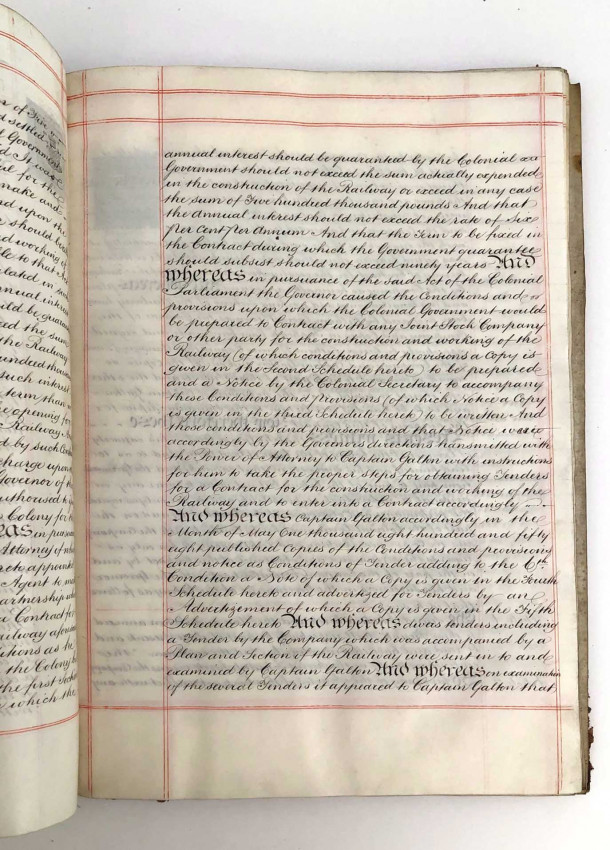 n of Five
d settled
t Government
d It was
ial for the
make and
ad upon the
e should be
ed working
le to that
elated in
nnual interest
uld be guaran
ed the sum
the Railway
undred thou
such interest
term than
e opening for
Railway
d by such
charge upon
Governor of the
authorised to
s Colony for
eas in pursuan
Attorney if
reto appoint
Agent to
artnership
a Contract for
ailway afores
ditions as be
the Colony
the first Sched
e which the
annual interest should be guaranteed by the Colonial
Government should not exceed the sum actually expended
in the construction of the Railway or exceed in any case
the sum of Five hundred thousand pounds And that
the annual interest should not exceed the rate of Six
per Cent per Annum And that the Term to be fixed in
the Contract during which the Government guarantee
should subsist should not exceed ninety years And
whereas in pursuance of the said Act of the Colonial
Parliament the Governor caused the Conditions and
provisions upon which the Colonial Government would
be prepared to Contract with any Joint Stock Company
or other party for the construction and working of the
Railway (of which conditions and provisions a Copy is
given in the Second Schedule hereto) to be prepared
and a Notice by the Colonial Secretary to accompany
these Conditions and provisions (of which Notice a Copy
is given in the third Schedule hereto) to be written And
those conditions and provisions and that Notice were
accordingly by the Govenors directions transmitted with
the Power of Attorney to Captain Galton with instructions
for him to take the proper steps for obtaining Tenders
for a Contract for the construction and working of the
Railway and to enter into a Contract accordingly
And whereas Captain Galton accordingly in the
Month of May One thousand eight hundred and fifty
eight published copies of the Conditions and provisions
and notice as Conditions of Tender adding to the 6th
Condition a Note of which a Copy is given in the Fourth
Schedule hereto and advertized for Tenders by an
Advertizement of which a Copy is given in the Fifth
Schedule hereto And whereas divers tenders including
a Tender by the Company which was accompanied by a
Plan and Section of the Railway were sent in to and
examined by Captain Galton And whereas on examination
of the several Tenders it appeared to Captain Galton that